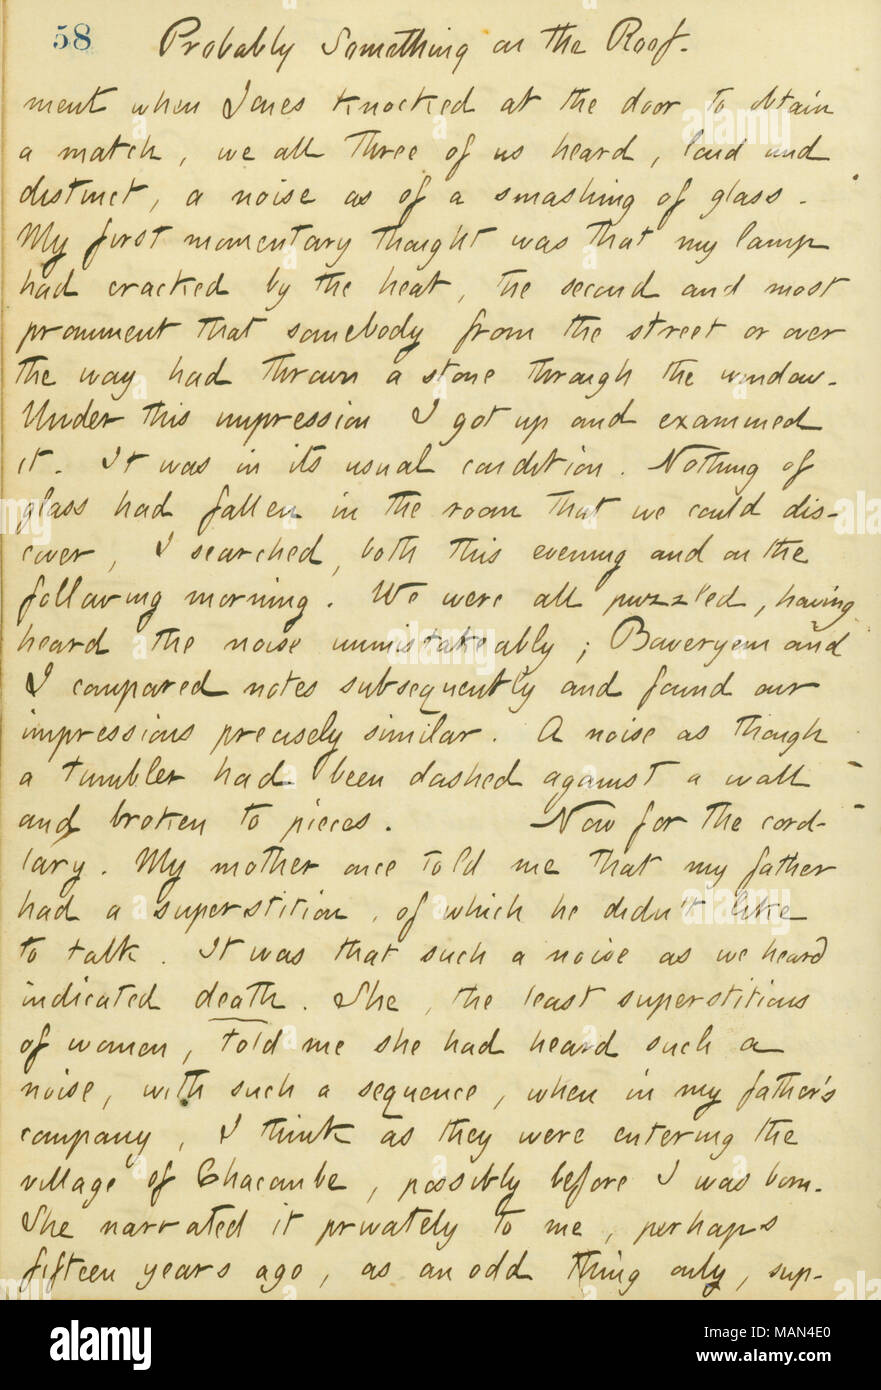 58 Probably Something on the Roof.
ment when Jones knocked at the door to obtain
a match, we all three of us heard, loud and
distinct, a noise as of a smashing of glass.
My first momentary thought was that my lamp
had cracked by the heat, the second and most
prominent that somebody from the street or over
the way had thrown a stone through the window.
Under this impression I got up and examined
it. It was in its usual condition. Nothing of
glass had fallen in the room that we could dis-
cover, I searched, both this evening and on the
following morning. We were all puzzled, having
heard the noise unmistakeably; Boweryem and
I compared notes subsequently and found our
impressions precisely similar. A noise as though
a tumbler had been dashed against a wall
and broken to pieces. Now for the corol-
lary. My mother once told me that my father
had a superstition, of which he didn't like
to talk. It was that such a noise as we heard
indicated death. She, the least superstitious
of women, told me she had heard such a
noise, with such a sequence, when in my father's
company, I think as they were entering the
village of Chacombe, possibly before I was born.
She narrated it privately to me, perhaps
fifteen years ago, as an odd thing only, sup-
alamy
Image ID: MAN4E0
www.alamy.com